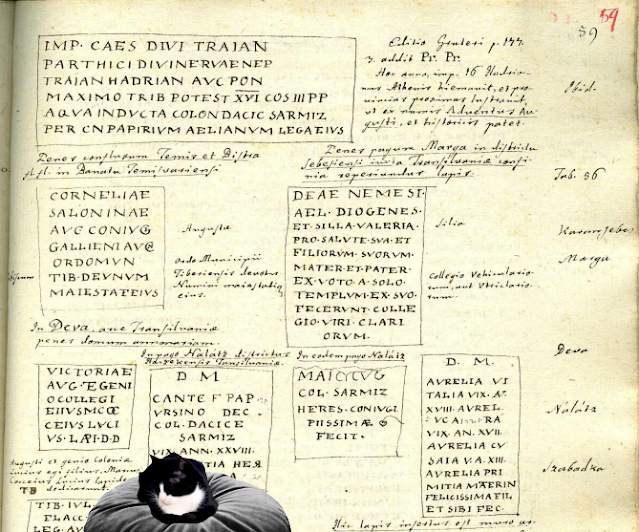 59
59
IMP· CAES DIVI TRAIAN
PARTHICI DIVI NERVAE NEP
TRAIAN HADRIAN AVG PON
MAXIMO TRIB POTEST XVI COS III PP
AQUA INDVCTA COLON DACIC SARMIZ
PER CN PAPIRIVM AELIANVM LEGATEIVS
Editio Gruteri p. 177
3. addit Pr. Pr.
Hoc anno, imp. 16 Hadria-
nus Athenis hiemavit, et pro
vincias proximas lustravit,
ut ex numis Adventus Au-
gusti, et historicis patet.
Ibid.
Penes confluxum Temis et Bistra
fl. fl. in Banatu Temisvariensi
Penes pagum Marga in districtu
Sebesiensi iuxta Transilvaniæ confi-
nia reperiundus lapis.
Tab. 86
CORNELIAE
SALONINAE
AVG CONIVG
GALLIENI AVG
ORDO MVN
TIB DEV NVM
MAIESTATEIVS
Augustæ
ordo Municipii
Tiberiensis devotus
Numini maiestatiq
eius.
DEAE NEMESI·
AEL· DIOGENES·
ET· SILLA· VALERIA·
PRO· SALVTE· SVA· ET·
FILIORVM· SVORVM·
MATER· ET· PATER·
EX· VOTO· A· SOLO·
TEMPLVM· EX· SVO·
FECERVNT· COLLE
GIO· VIRI· CLARI
ORVM.
Silia
Collegio Vehiculario-
rum, aut Utriclario-
rum.
Karansebes
Marga
In Deva, arce Transilvaniæ
penes domum annonariam.
In pago Nalátz districtus
In eodem pago Nalátz
Deva
VICTORIAE
AVG· ET GENI
O COLLEGI
EIIVS M COC
CEIVS LVCI
VS· LAPI· D· D
D M
CANTE F PAP·
VRSINO DEC·
COL· DACICE
SARMIZ
VIX ANN· XXVIII·
MAI
COL· SARMIZ
HERES· CONIVGI
PIISSIMAE
FECIT·
D. M.
AVRELIA VI
TALIA VIX· A·
XVIII· AVREL·
VIX· AN· XVII
AVRELIA CV
SAIA V· A· XIII·
AVRELIA PRI
MITIA MAERIN
FELICISSIMA FIL·
ET SIBI FEC·
Nalátz
Szabadka
Augusti et genio Coloniæ
TIB· IVL·
FLACC
LEG· AV
Hic lapis insertus est muro